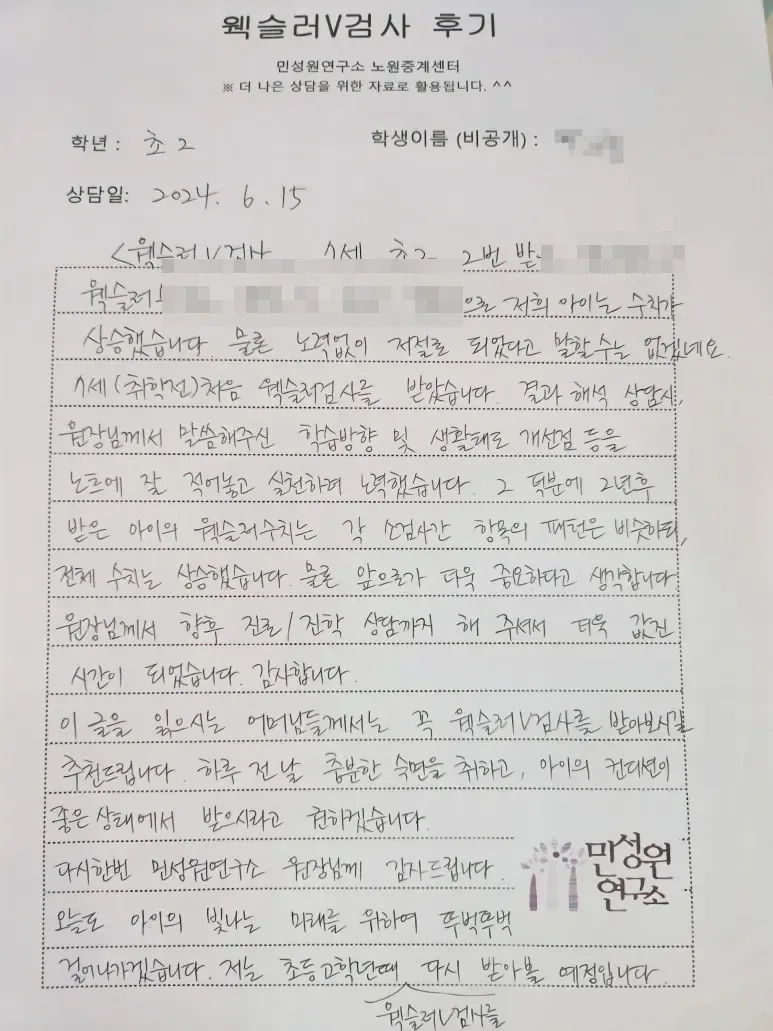 웩슬러V검사 후기
민성원연구소 노원중계센터
※ 더 나은 상담을 위한 자료로 활용됩니다. ^^
학년 : 초 2
학생이름 (비공개) :
상담일: 2024. 6. 15
<웩슬러V검사 7세 초2 2번 받
웩슬러 으로 저희 아이는 수치가
상승했습니다. 물론 노력없이 저절로 되었다고 말할수는 없겠네요.
7세(취학전)처음 웩슬러검사를 받았습니다. 결과 해석 상담시,
원장님께서 말씀해주신 학습방향 및 생활태도 개선점 등을
노트에 잘 적어놓고 실천하려 노력했습니다. 그 덕분에 2년후
받은 아이의 웩슬러수치는 각 소검사간 항목의 패턴은 비슷하되,
전체 수치는 상승했습니다. 물론 앞으로가 더욱 중요하다고 생각합니다.
원장님께서 향후 진로/진학 상담까지 해 주셔서 더욱 값진
시간이 되었습니다. 감사합니다.
이 글을 읽으시는 어머님들께서는 꼭 웩슬러V검사를 받아보시길
추천드립니다. 하루 전날 충분한 숙면을 취하고, 아이의 컨디션이
좋은 상태에서 받으시라고 권하겠습니다.
다시한번 민성원연구소 원장님께 감사드립니다.
민성원
연구소
오늘도 아이의 빛나는 미래를 위하여 뚜벅뚜벅
걸어나가겠습니다. 저는 초등고학년때 다시 받아볼 예정입니다.
웩슬러V검사를